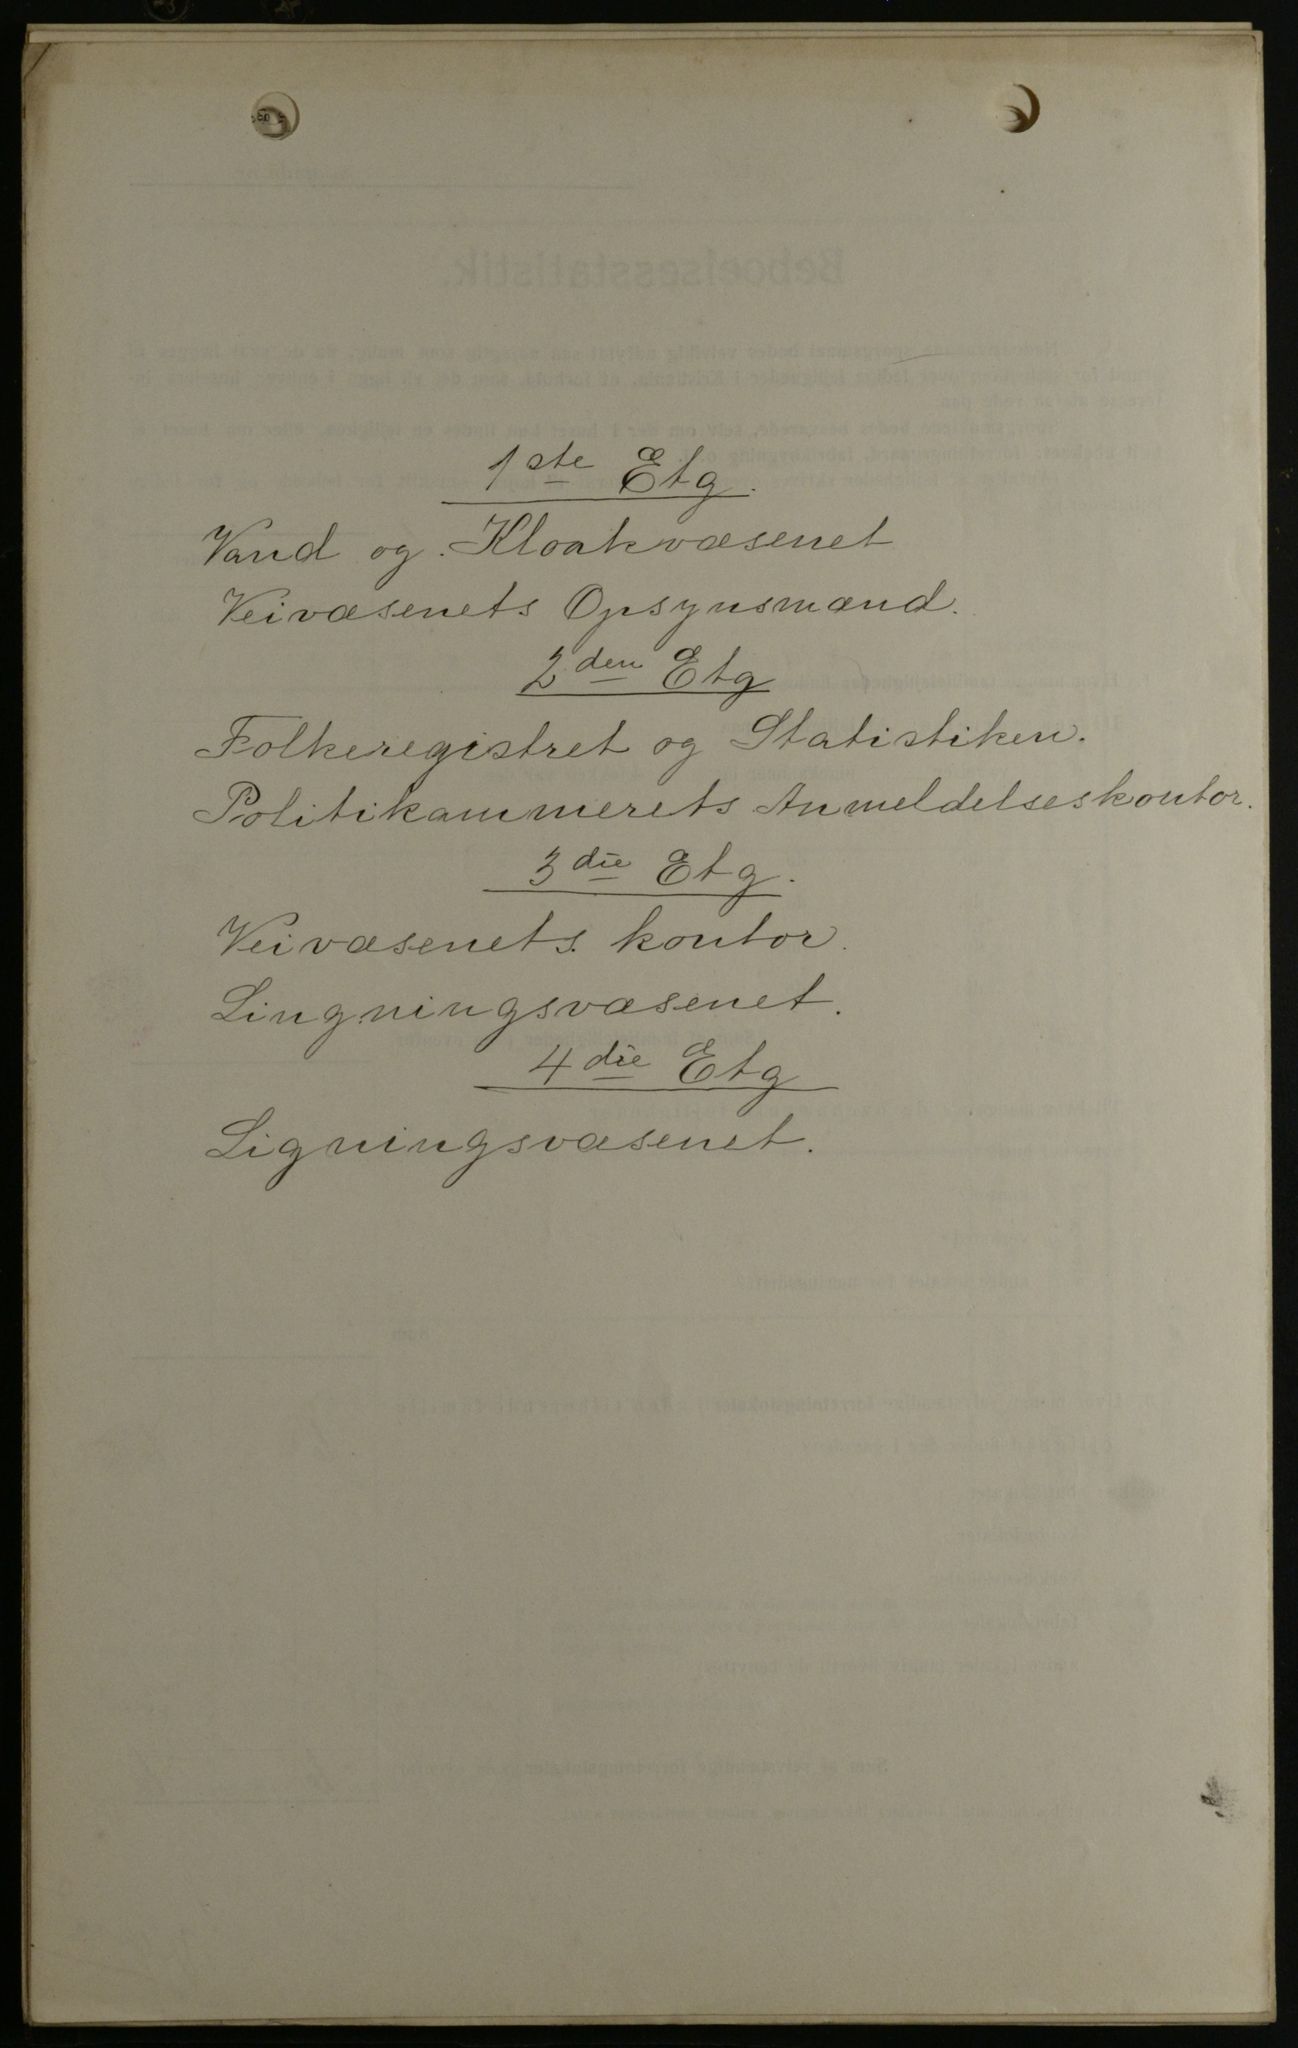 1ste Etg.
Vand og Kloakvæsenet
Veivæsenets Opsynsmænd.
2den Etg
Folkeregistret og Statistiken.
Politikammerets Anmeldelseskontor.
3die Etg.
Veivæsenets kontor.
Lingningsvæsenet.
4die Etg
Ligningsvæsenet.